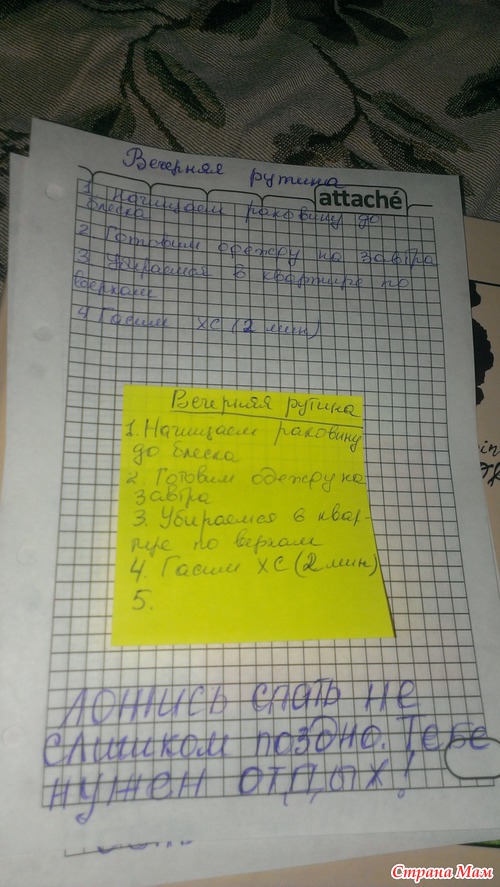 Вечерняя рутина
attaché
1 Начищаем раковину до
блеска
2 Готовим одежду на завтра
3 Убираемся в квартире по
верхам
4 Гасим ХС (2 мин)
Вечерняя рутина
1. Начищаем раковину
до блеска
2. Готовим одежду на
завтра
3. Убираемся в квар-
тире по верхам
4. Гасим ХС (2 мин)
5.
Ложись спать не
слишком поздно. Тебе
нужен отдых!
Страна Мам